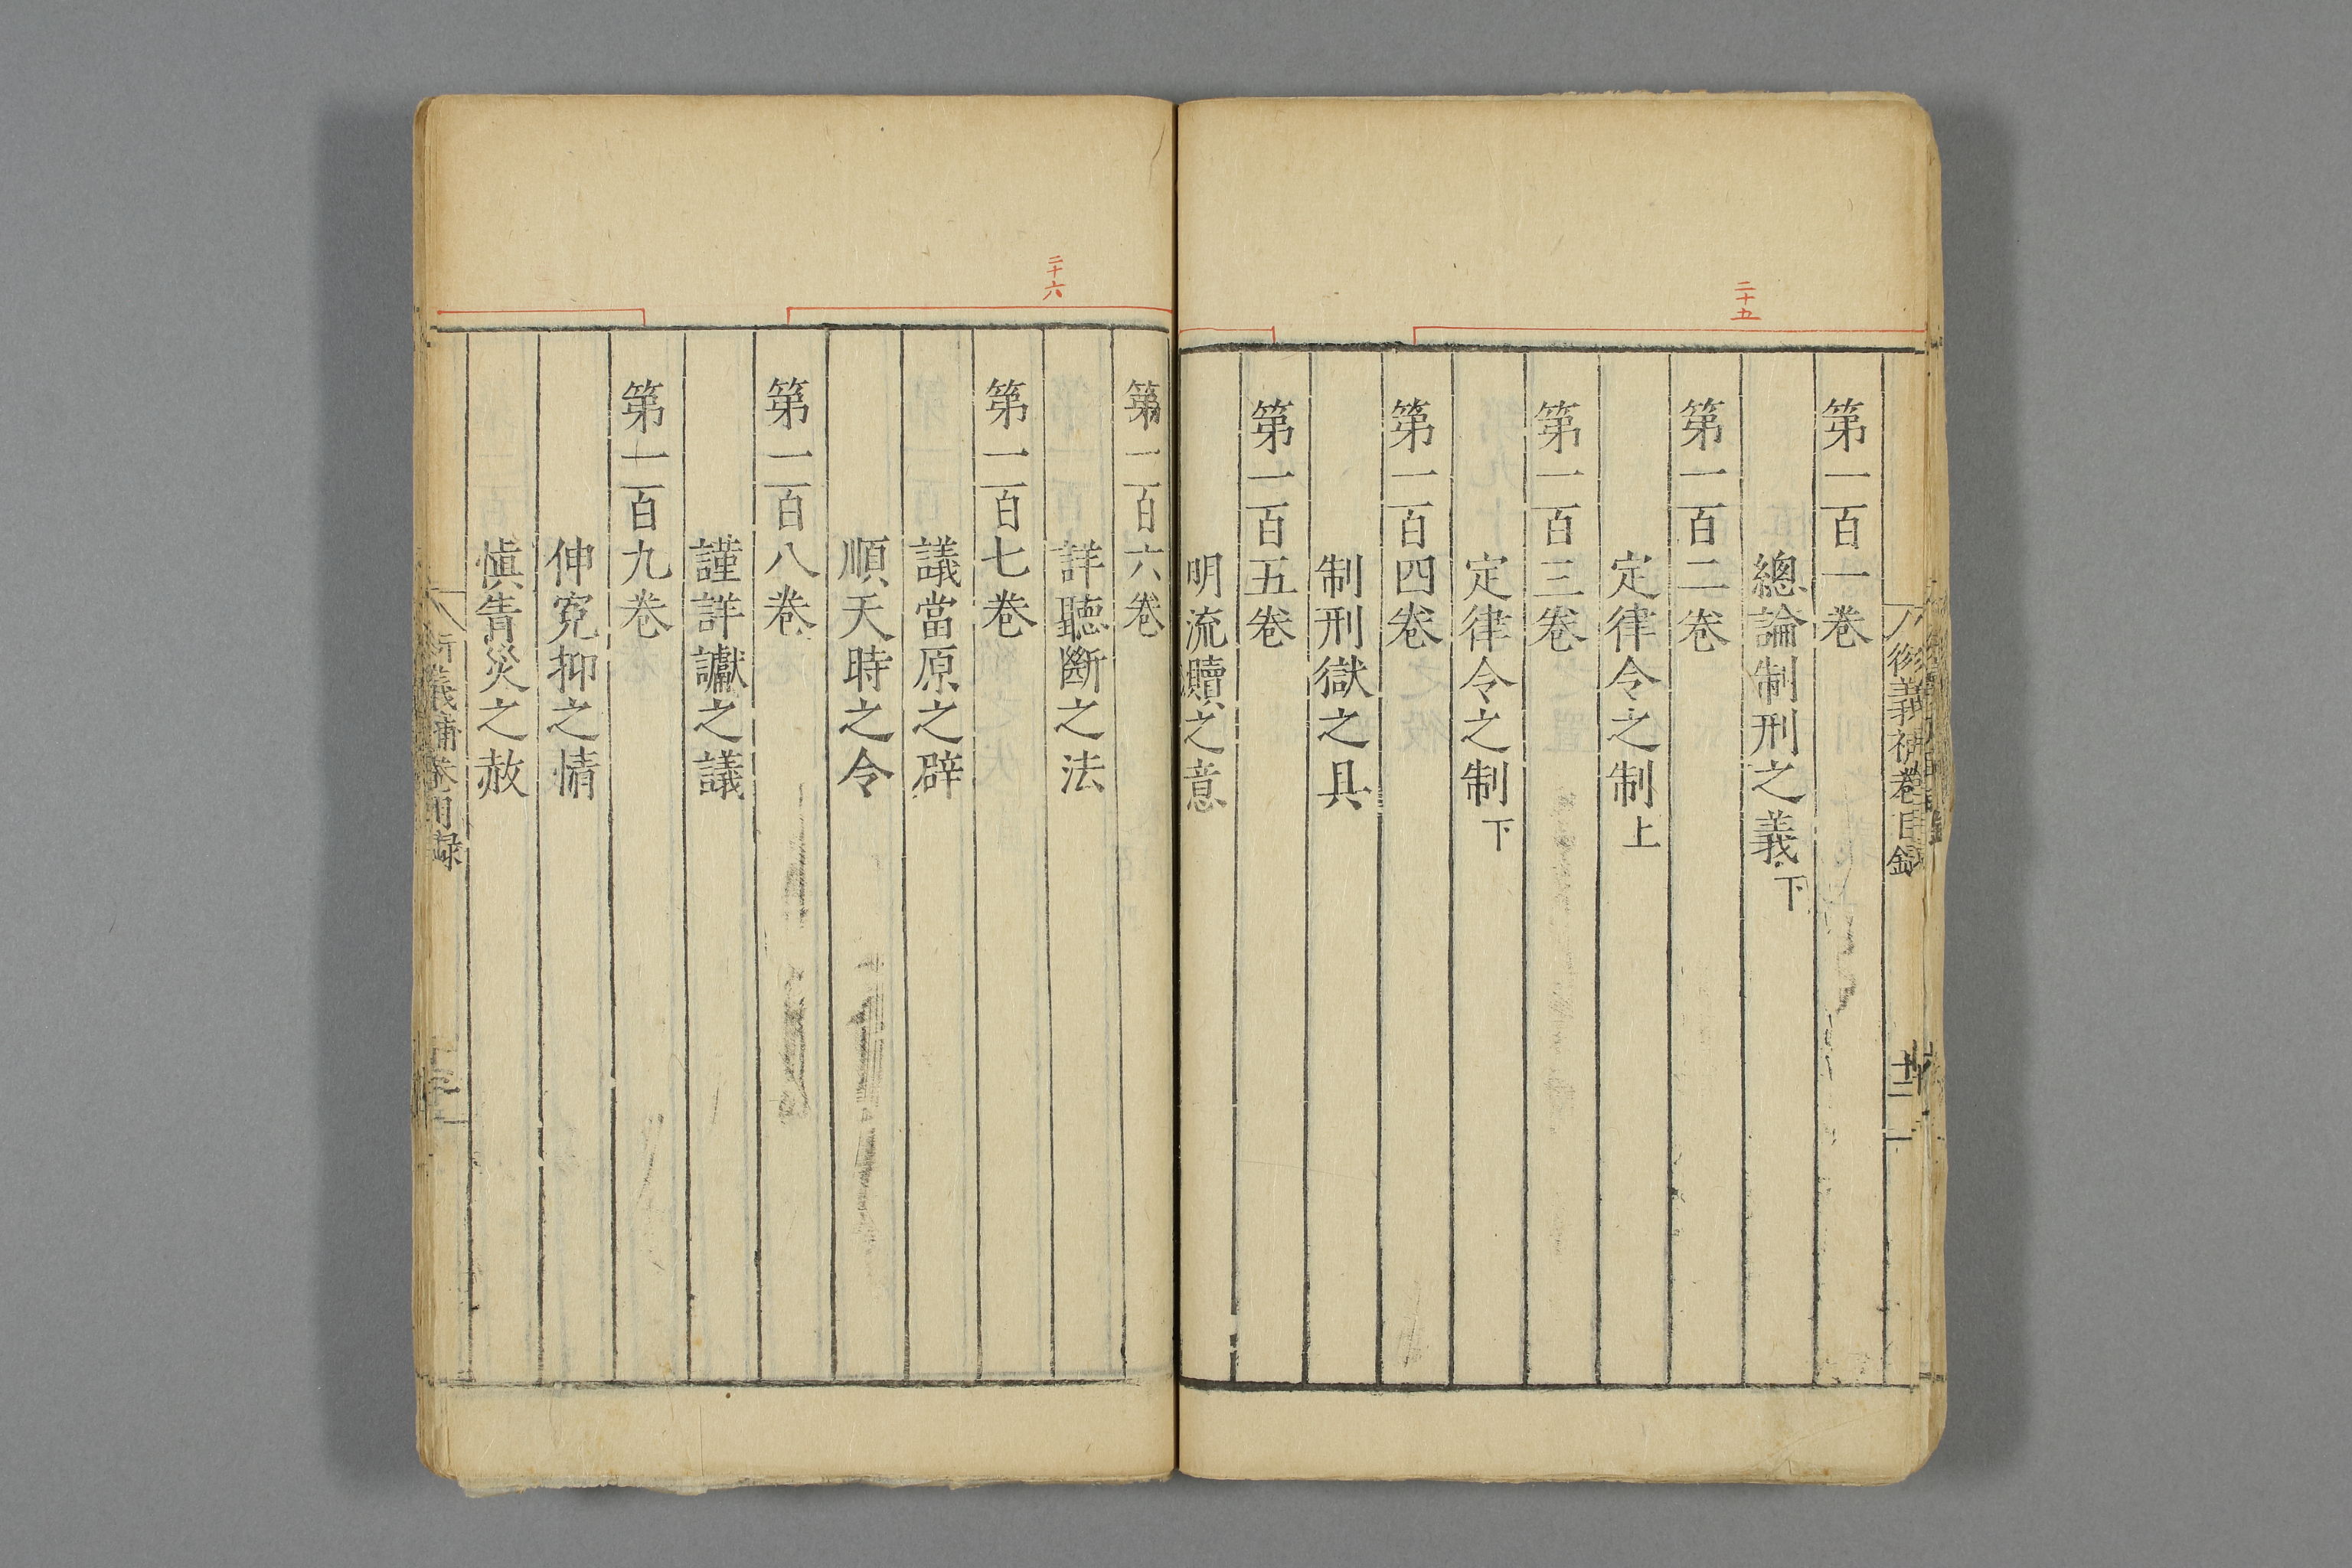 二十五
第一百一卷
總論制刑之義下
第一百二卷
定律令之制上
第一百三卷
定律令之制下
第一百四卷
制刑獄之具
第一百五卷
明流贖之意
二十六
第一百六卷
詳聽斷之法
第一百七卷
議當原之辟
順天時之令
第一百八卷
謹詳讞之議
第一百九卷
伸冤抑之情
慎眚災之赦
衍義補卷目錄